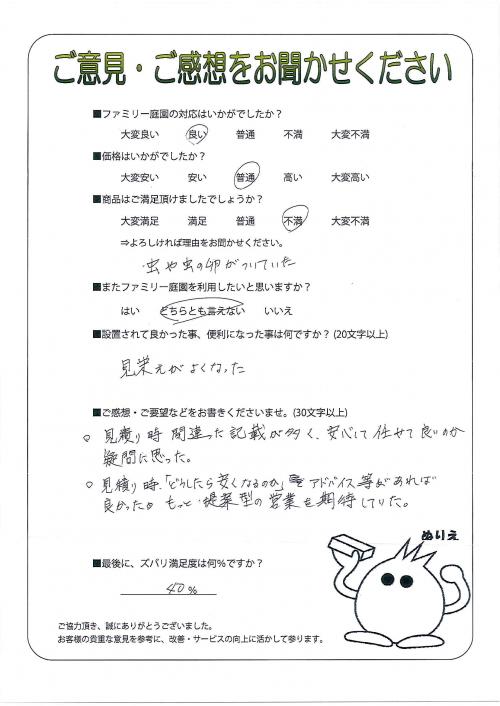 ご意見・ご感想をお聞かせください
■ファミリー庭園の対応はいかがでしたか？
大変良い 良い 普通 不満 大変不満
■価格はいかがでしたか？
大変安い 安い 普通 高い 大変高い
■商品はご満足頂けましたでしょうか？
大変満足 満足 普通 不満 大変不満
⇒よろしければ理由をお聞かせください。
・虫や虫の卵がついていた
■またファミリー庭園を利用したいと思いますか？
はい どちらとも言えない いいえ
■設置されて良かった事、便利になった事は何ですか？(20文字以上)
見栄えがよくなった
■ご感想・ご要望などをお書きくださいませ。(30文字以上)
○ 見積り時 間違った記載が多く、安心して任せて良いのか
疑問に思った。
○ 見積り時、「どうしたら安くなるのか」をアドバイス等があれば
良かった。もっと提案型の営業を期待していた。
ぬりえ
■最後に、ズバリ満足度は何％ですか？
40%
ご協力頂き、誠にありがとうございました。
お客様の貴重な意見を参考に、改善・サービスの向上に活かして参ります。